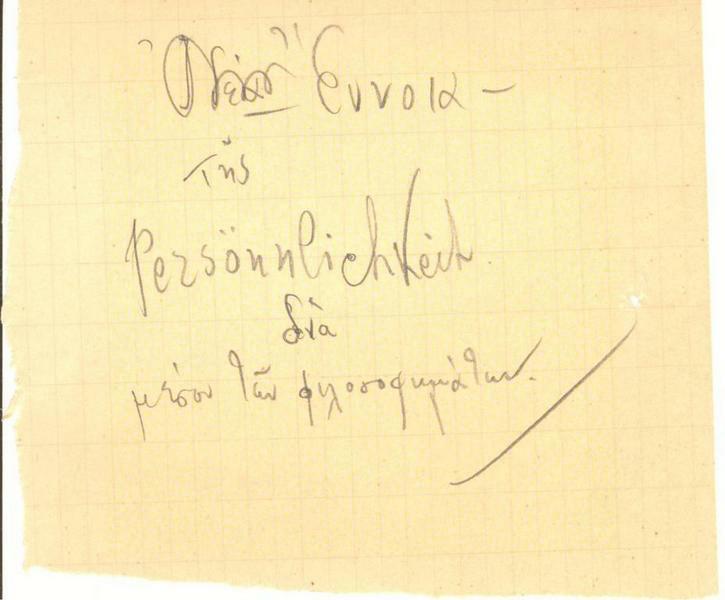 Νέα ἔννοια –
τῆς
Persönnlichkeit
διὰ
μέσου τῶν φιλοσοφημάτων.